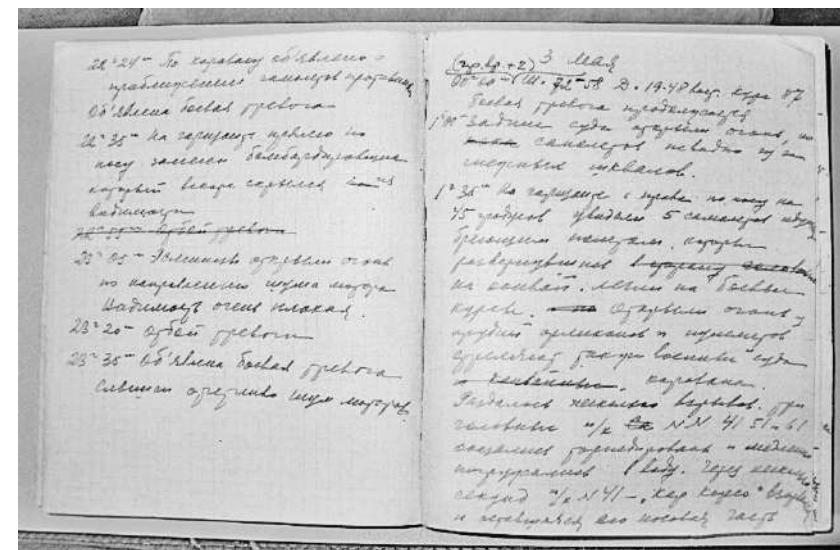 22ч 24м По каравану об'явлено о
приближении самолетов противника
Об'явлена боевая тревога
22ч 35м На горизонте прямо по
носу замечен бомбардировщик
который вскоре скрылся из
видимости
22ч 55м отбой тревоги
23ч 05м Эсминцы открыли огонь
по направлению шума мотора
Видимость очень плохая.
23ч 20м отбой тревоги
23ч 35м Об'явлена боевая тревога
Слышен отчетливо шум моторов
(гр. вр. +2) 3 МАЯ
00ч 00м Ш. 72-58 Д. 19-48 вост. курс 87
боевая тревога продолжается
1ч 00м Задние суда открыли огонь, но
самолетов невидно из за
снежных шквалов.
1ч 35м На горизонте с права по носу на
45 градусов увидели 5 самолетов идущ
бреющим полетом, которые
развернувшись
на конвой, легли на боевые
курсы. Открыли огонь из
орудий орликонов и пулеметов
стреляют также военные суда
каравана.
Раздалось несколько взрывов. три
головных п/х NN 41 51 и 61
оказались торпедированы и медленно
погружались в воду. Через несколько
секунд п/х N 41 –
и оставшаяся его носовая часть